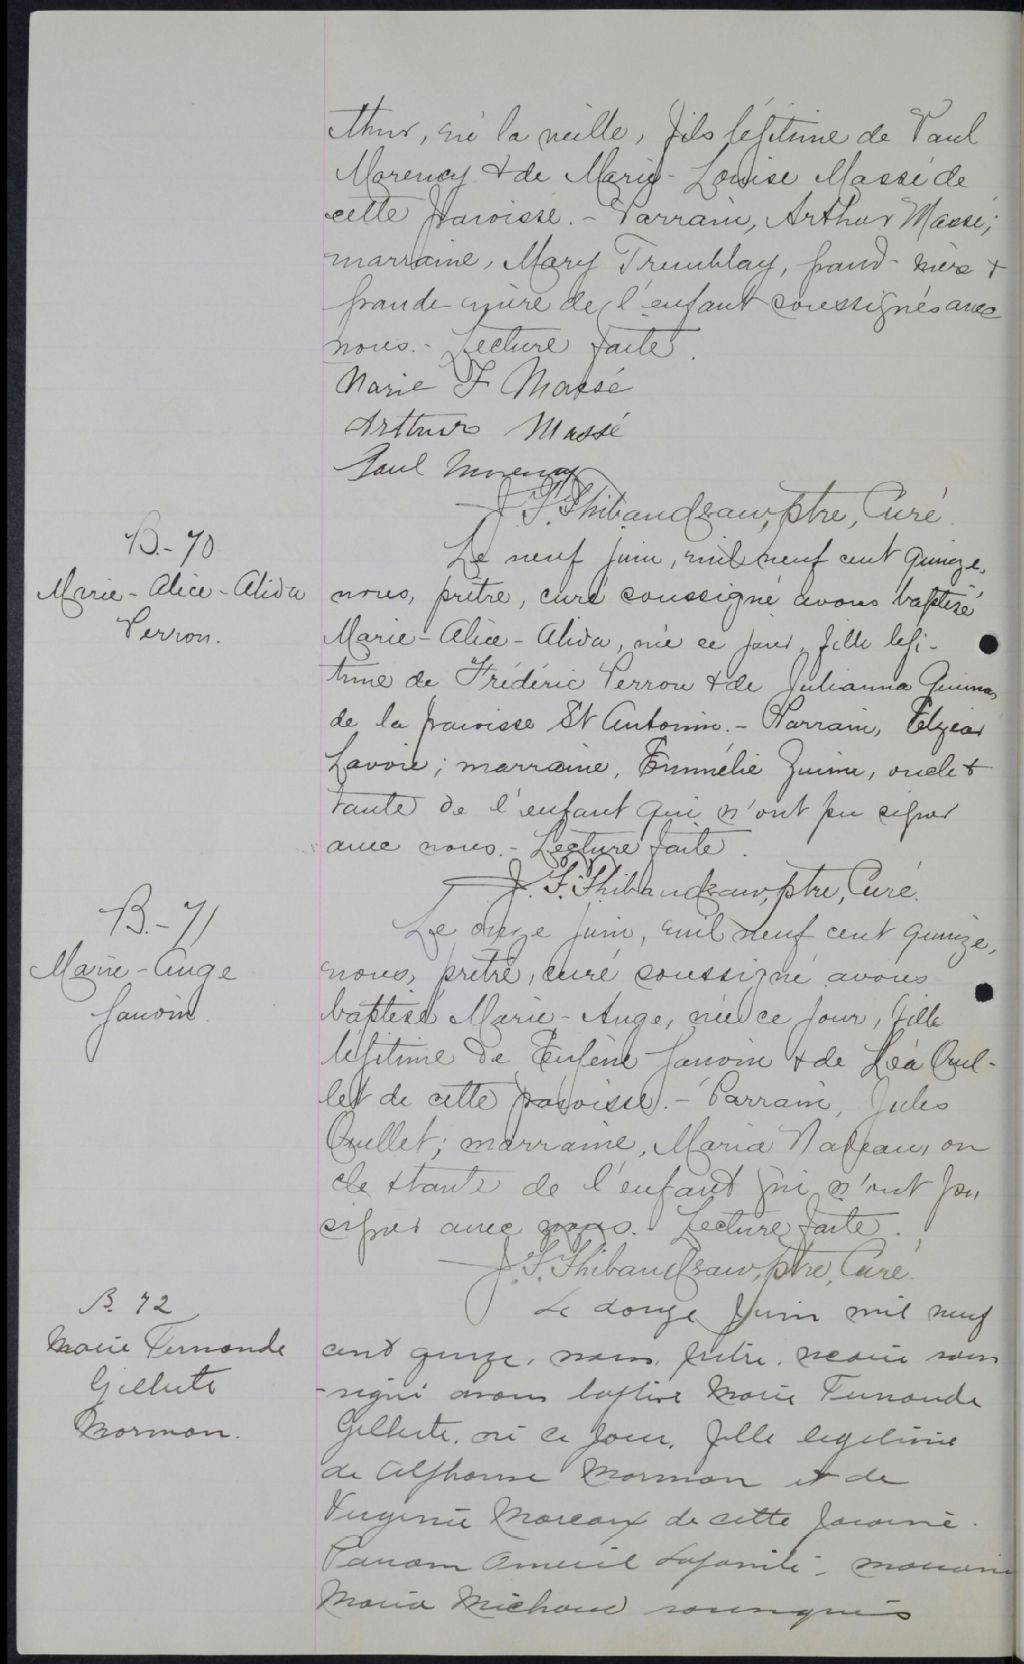 thur, né la veille, fils légitime de Paul
Morency & de Marie-Louise Massé de
cette paroisse. - Parrain, Arthur Massé;
marraine, Mary Tremblay, grand-père &
grande-mère de l'enfant soussignés avec
nous. - Lecture faite.
Marie F Massé
Arthur Massé
Paul Morency
J. S. Thibaudeau, ptre, Curé.
B.-70
Marie-Alice-Alida
Perron.
Le neuf juin, mil neuf cent quinze,
nous, prêtre, curé soussigné avons baptisé
Marie-Alice-Alida, née ce jour, fille légi-
time de Frédéric Perron & de Julianna
de la paroisse St Antonin. - Parrain, Elzéar
Lavoie; marraine, oncle &
tante de l'enfant qui n'ont pu signer
avec nous. - Lecture faite.
J. S. Thibaudeau, ptre, Curé.
B.-71
Marie-Ange
Jauvin.
Le onze juin, mil neuf cent quinze,
nous, prêtre, curé soussigné avons
baptisé Marie-Ange, née ce jour, fille
légitime de Eugène Jauvin & de Léa Ouel-
let de cette paroisse. - Parrain, Jules
Ouellet; marraine, Maria Nadeau, on
cle & tante de l'enfant qui n'ont pu
signer avec nous. Lecture faite.
J. S. Thibaudeau, ptre, Curé.
B. 72
Marie Fernande
Gilberte
Morman.
Le douze Juin mil neuf
cent quinze, nous, prêtre, vicaire sous
-signé avons baptisé Marie Fernande
Gilberte, né ce jour, fille legitime
de Alphonse Morman et de
Eugenie de cette paroisse.
Parrain marraine
Maria Michaud soussignés